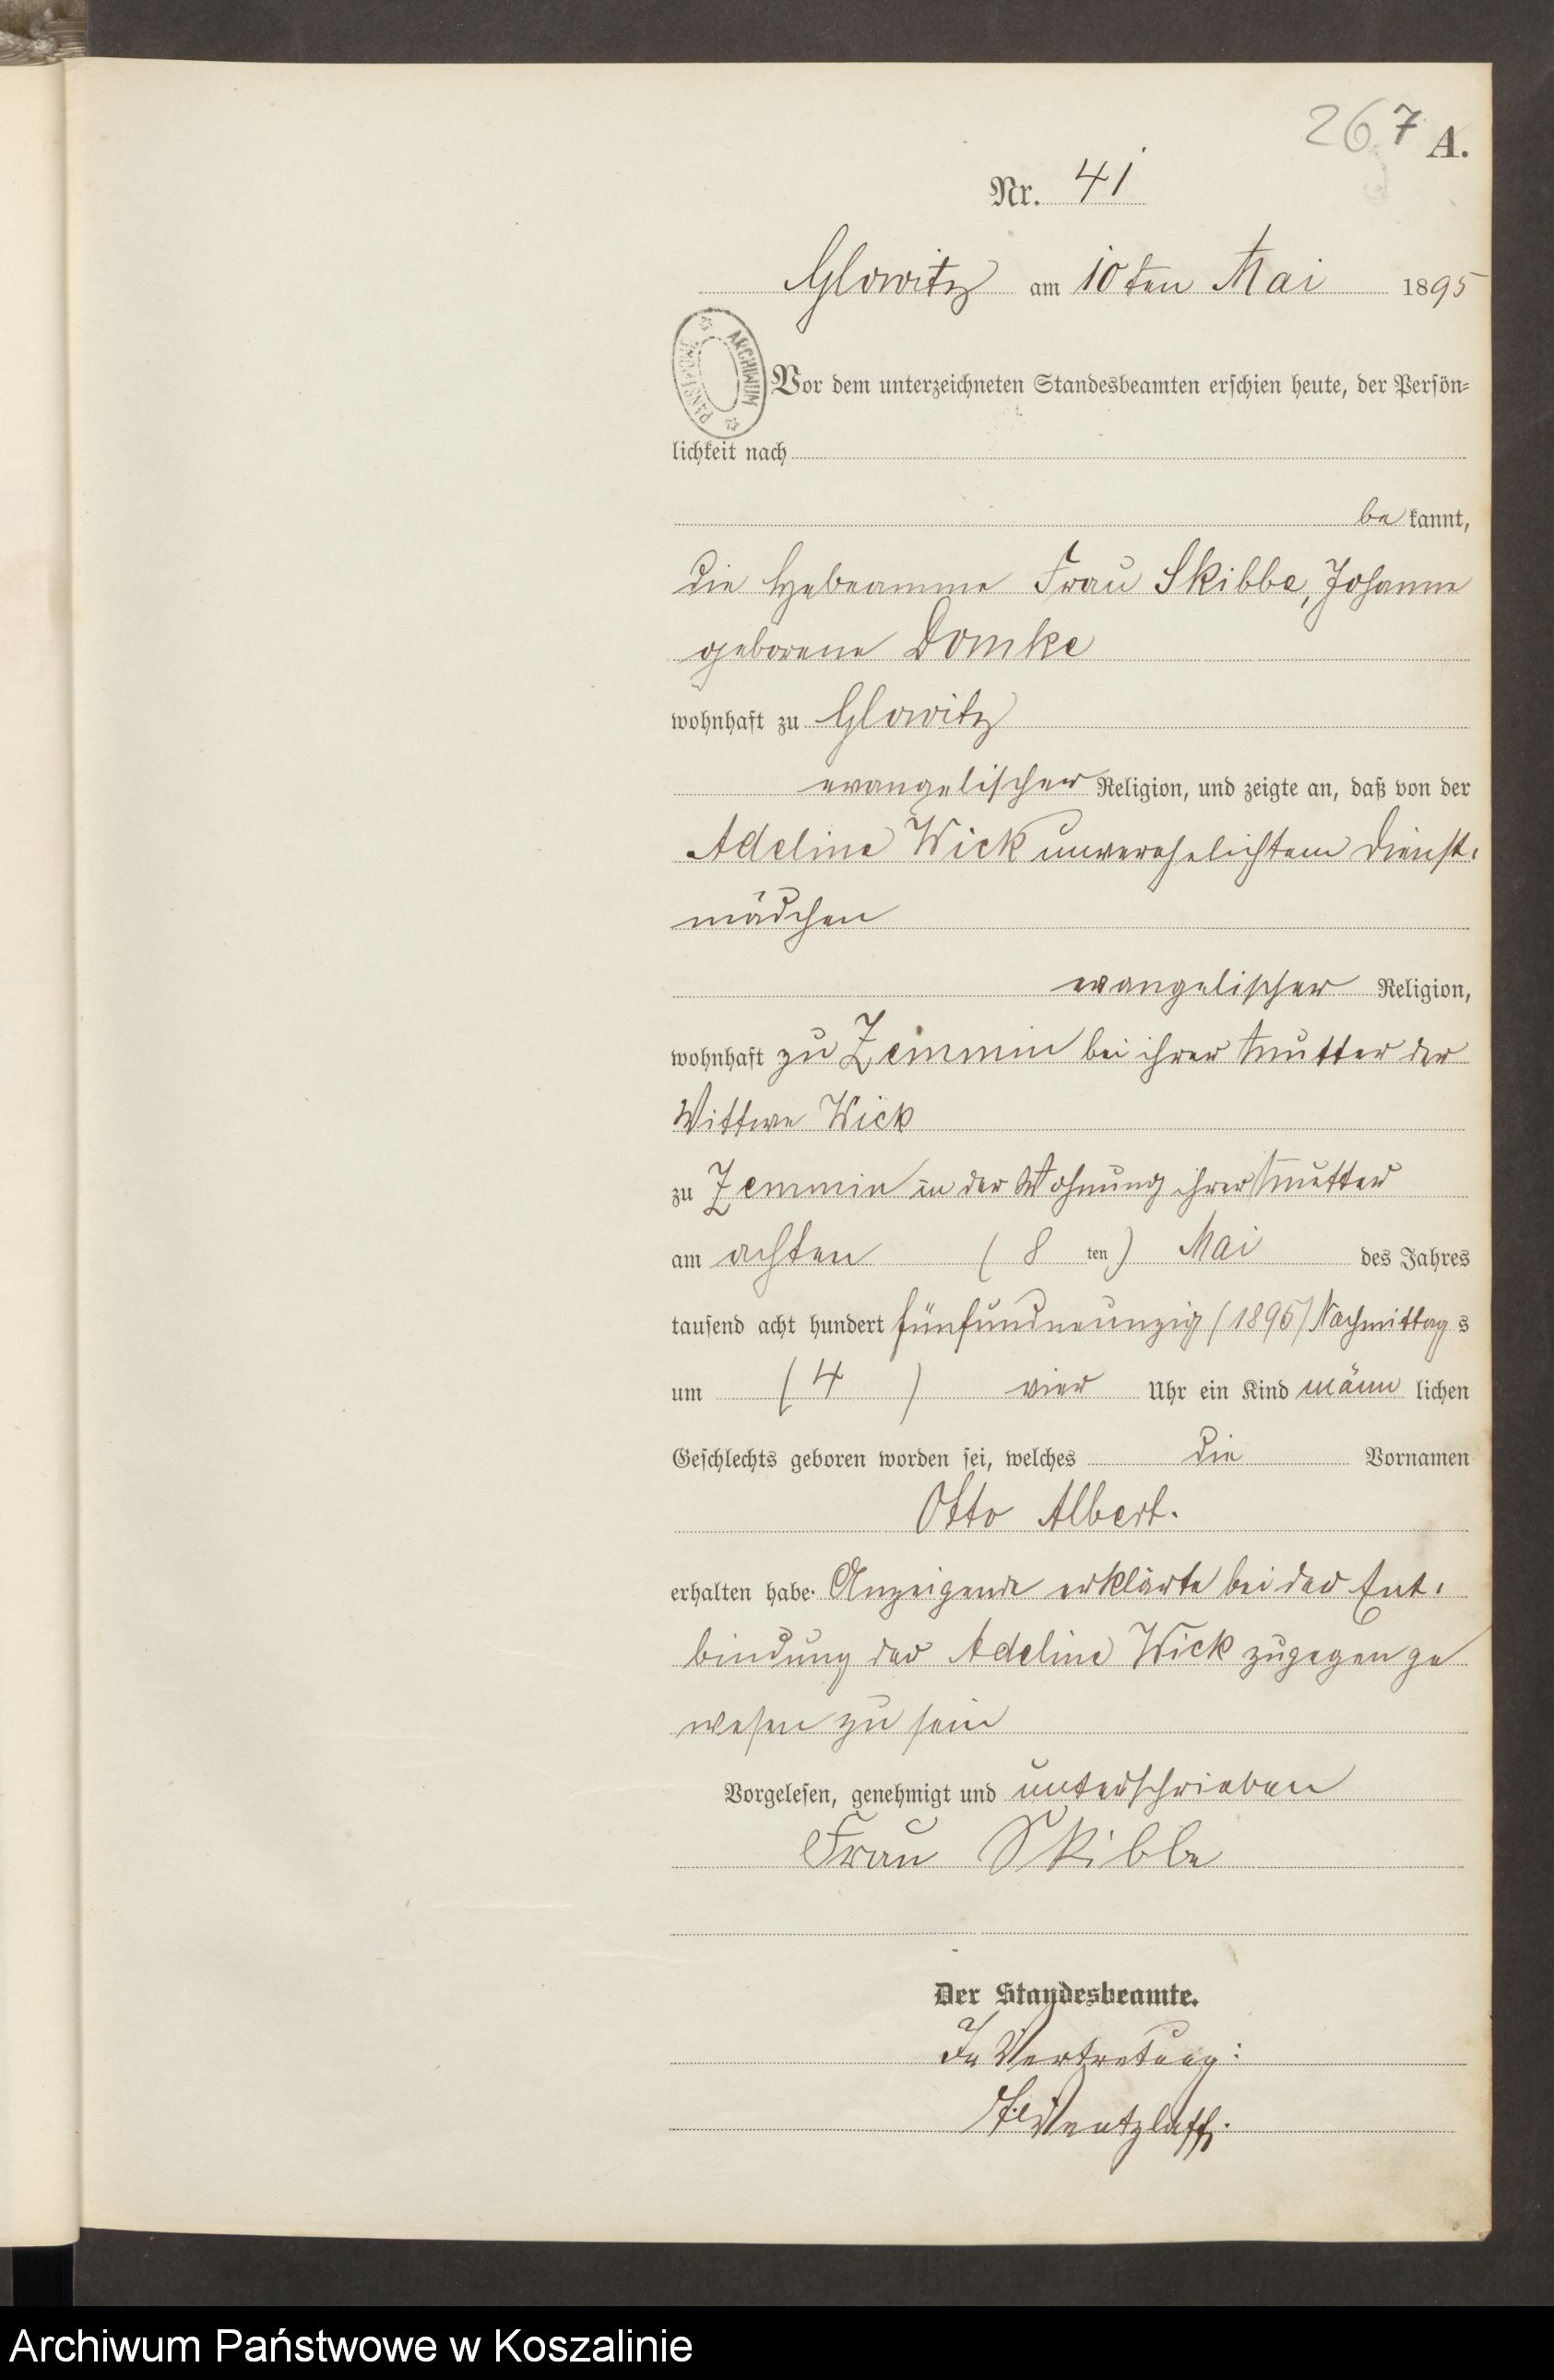 267 A.
Nr. 41
Glowitz am 10ten Mai 1895
ARCHIWUM PAŃSTWOWE
Vor dem unterzeichneten Standesbeamten erschien heute, der Persön-
lichkeit nach
be kannt,
die Hebeamme Frau Skibbe, Johanne
geborene Domke
wohnhaft zu Glowitz
evangelischer Religion, und zeigte an, daß von der
Adeline Wick unverehelichtem Dienst-
mädchen
evangelischer Religion,
wohnhaft zu Zemmin bei ihrer Mutter der
Wittwe Wick
zu Zemmin in der Wohnung ihrer Mutter
am achten (8 ten) Mai des Jahres
tausend acht hundert fünfundneunzig (1895) Nachmittag s
um (4) vier Uhr ein Kind männ lichen
Geschlechts geboren worden sei, welches die Vornamen
Otto Albert.
erhalten habe. Anzeigende erklärte bei der Ent-
bindung der Adeline Wick zugegen ge
wesen zu sein
Vorgelesen, genehmigt und unterschrieben
Frau Skibbe
Der Standesbeamte.
In Vertretung:
Wentzlaff.
Archiwum Państwowe w Koszalinie